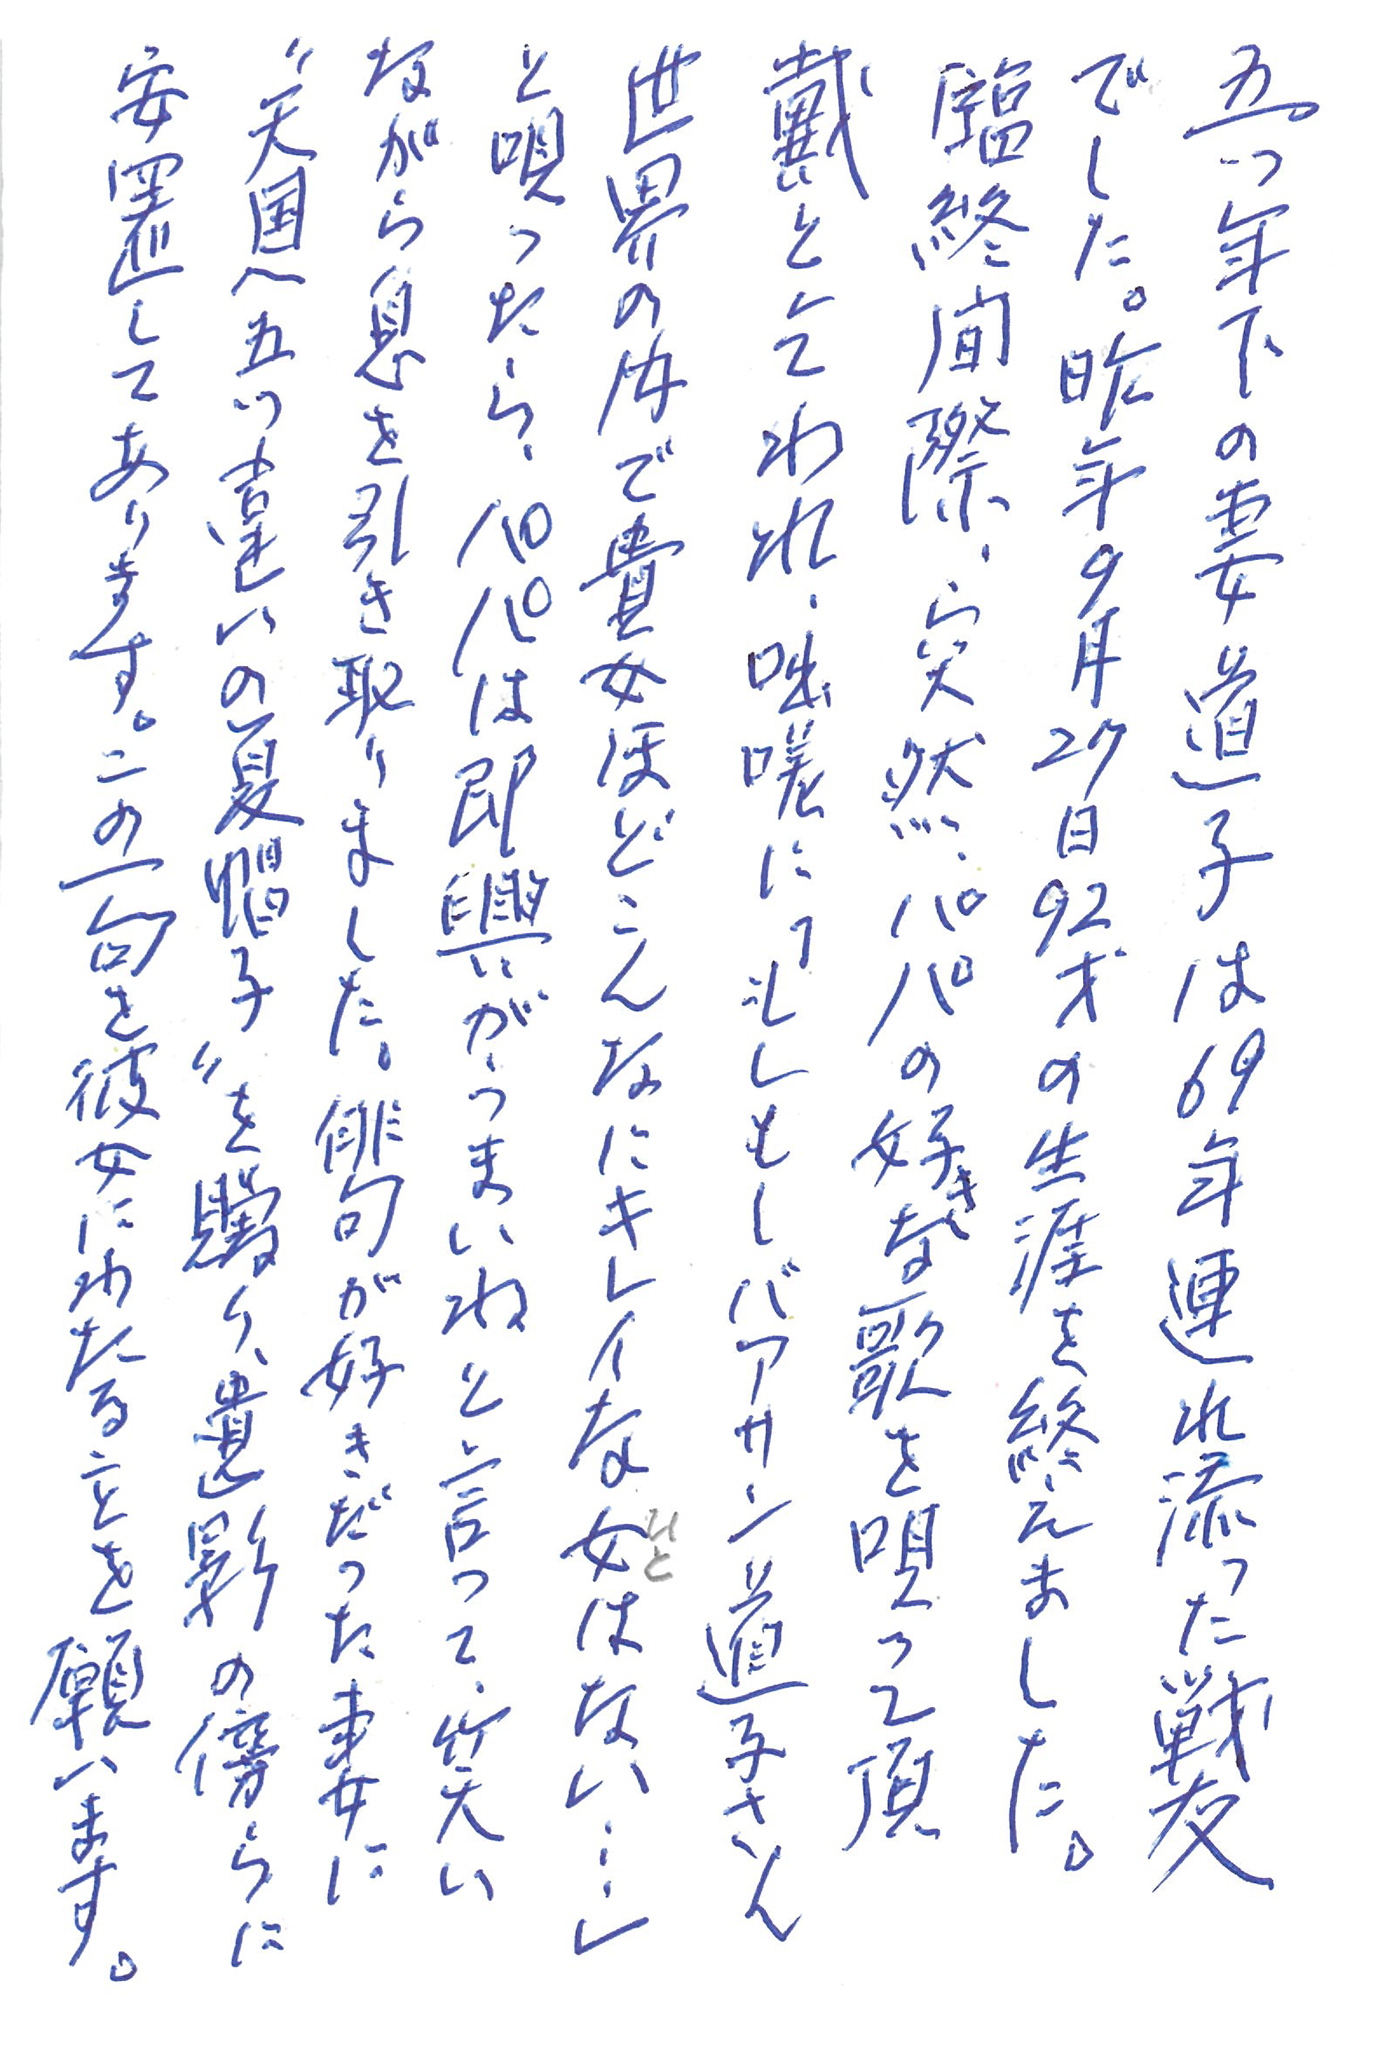 五つ年下の妻道子は69年連れ添った戦友
でした。昨年9月27日92才の生涯を終えました。
臨終間際、突然、パパの好きな歌を唄って頂
戴とせがわれ、咄嗟に「もしもしバアサン道子さん
世界の内で貴女ほどこんなにキレイな女はない…」
ひと
と唄ったら、パパは即興がうまいねと言って、笑い
ながら息を引き取りました。俳句が好きだった妻に
"天国へ五つ違いの夏帽子"を贈り、遺影の傍らに
安置してあります。この一句を彼女にわたることを願います。